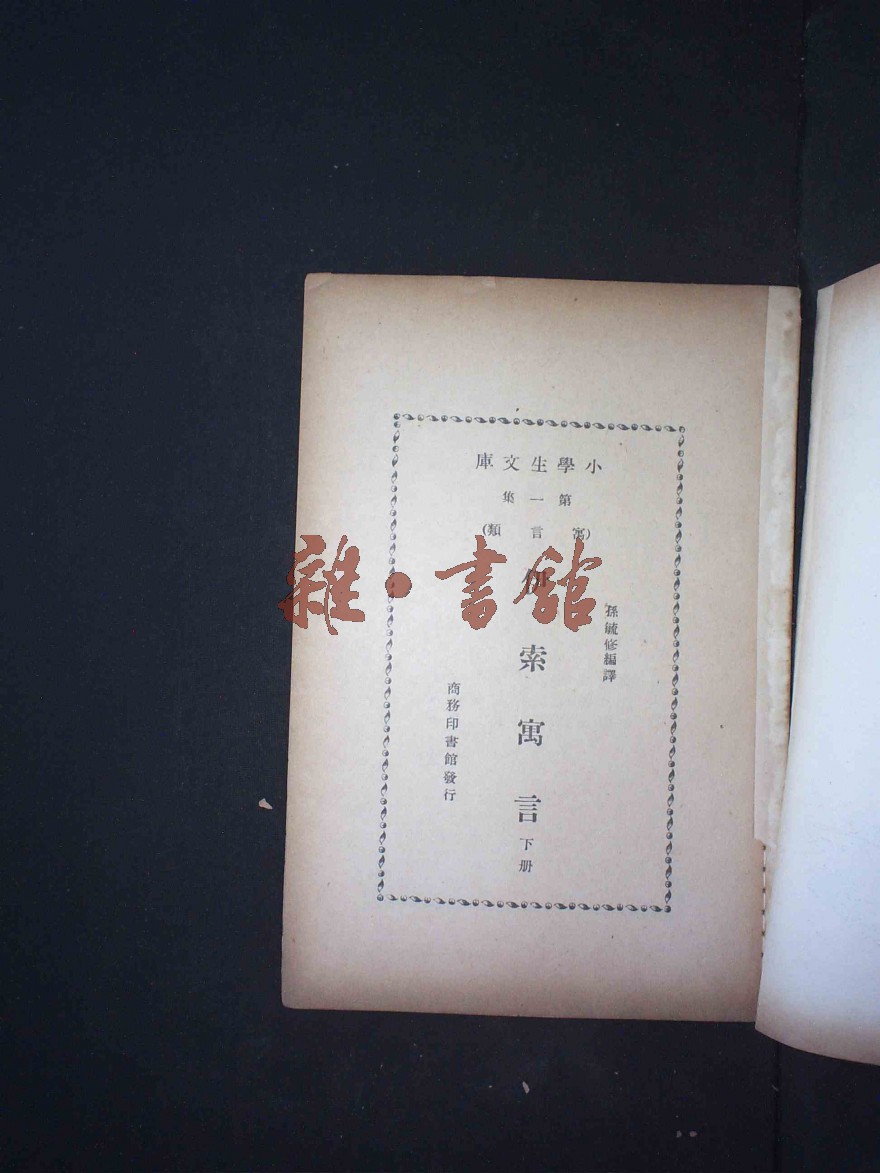 小學生文庫
第一集
(寓言類)
孫毓修編譯
伊索寓言下册
商務印書館發行
雜·書館